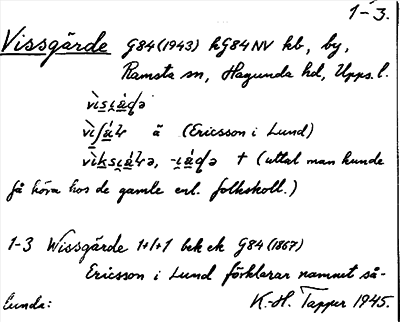 1-3.
Vissgärde G84(1943) kG84NV hb, by,
Ramsta sn, Hagunda hd, Upps. l.
ä (Ericsson i Lund)
† (uttal man kunde
få höra hos de gamle enl. folkskoll.)
1-3 Wissgärde 1+1+1 bek ek G84 (1867)
Ericsson i Lund förklarar namnet så-
lunda: K.-H. Tapper 1945.